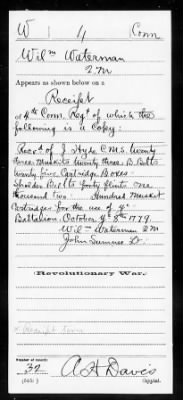 W | 4 | Conn
Wilm Waterman
2. M
Appears as shown below on a
Receipt
of 4th Conn. Regt of which the
following is a Copy:
Recd of J. Hyde C.M.S. twenty
three Muskets twenty three B. Belts
twenty five Cartridge Boxes
Shoulder Belts forty flints one
thousand two Hundred Musket
Cartridges for the use of ye
Battalion, October ye 8th 1779.
Wilm Waterman 2M
John Sumner Lt.
Revolutionary War.
Number of record:
32
A H Davis
Copyist.